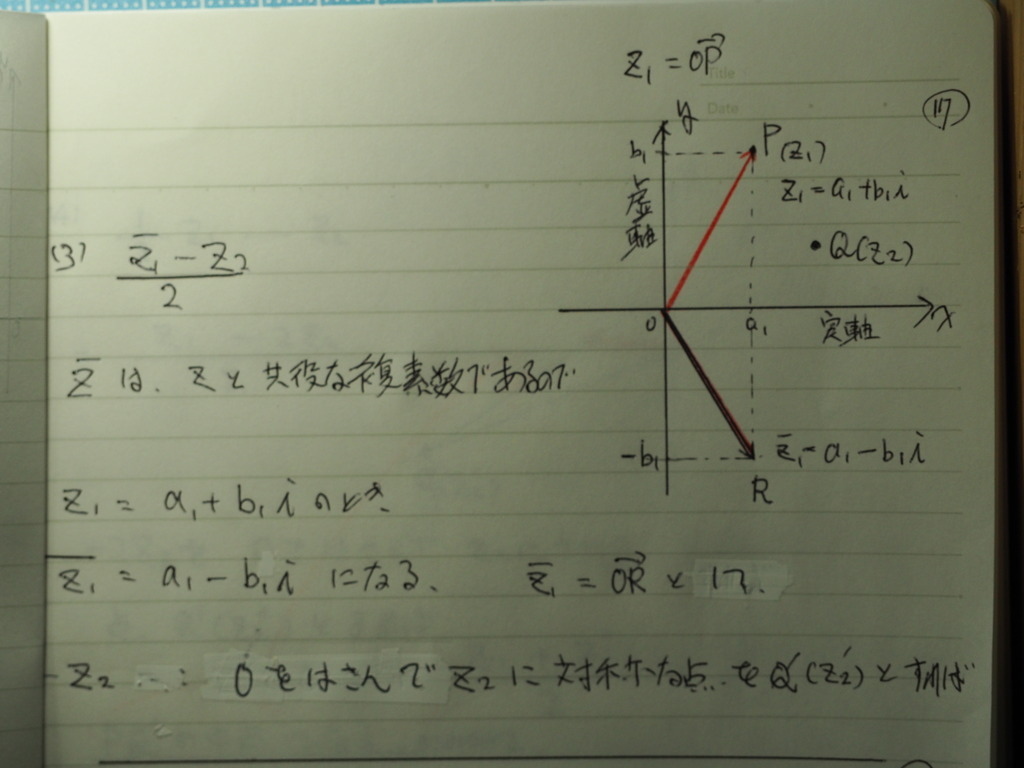 z₁ = OP→
Title
Date
117
y
b₁
P(z₁)
虚軸
z₁ = a₁ + b₁i
Q(z₂)
(3) (z̅₁ − z₂)/2
0 a₁ 実軸 x
z̅ は、z と共役な複素数であるので
−b₁
z̅₁ = a₁ − b₁i
R
z₁ = a₁ + b₁i のとき、
z̅₁ = a₁ − b₁i になる、 z̅₁ = OR→ として、
−z₂ …: 0をはさんで z₂ に対称な点 を Q'(z₂') とすれば